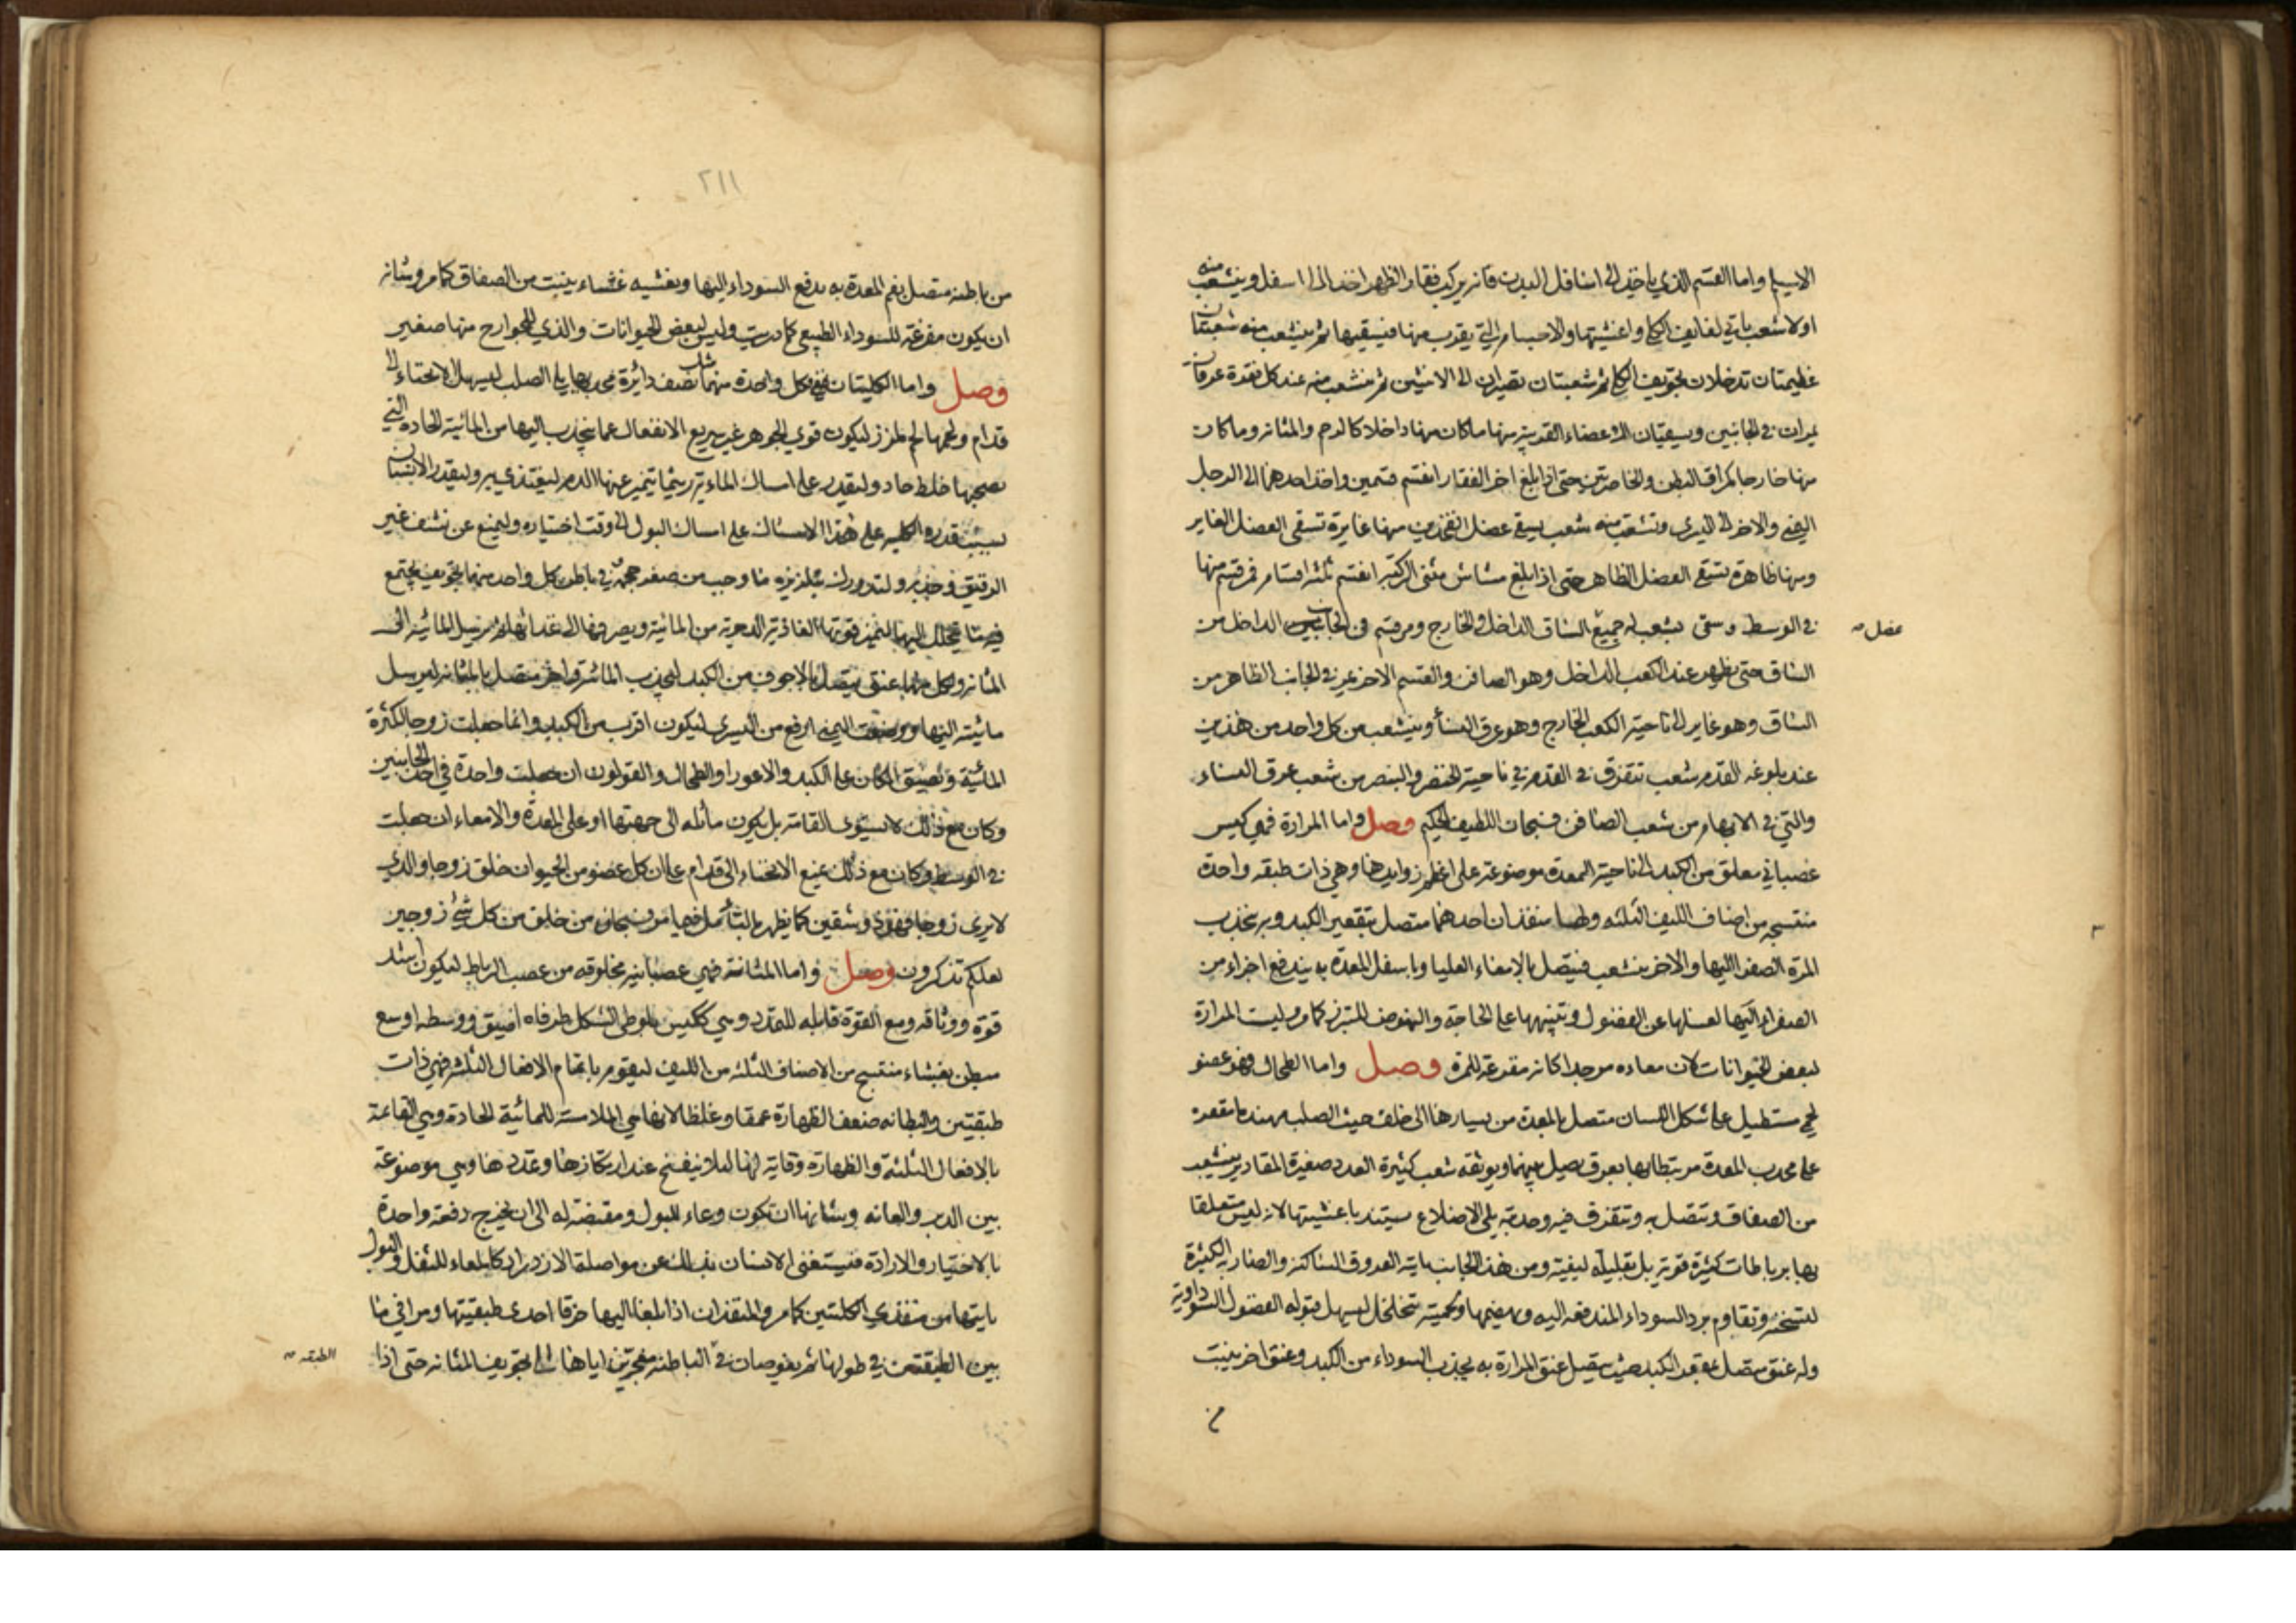 الايسر واما القسم الذي ياخذ الى اسافل البدن فانه يركب فقار الظهر اخذا الى اسفل وينشعب منه
اولا شعب ياتي لفايف الكلى واغشيتها والاجسام التي يقرب منها فيسقيها ثم ينشعب منه شعبتان
عظيمتان تدخلان تجويف الكلى ثم شعبتان تصيران الى الانثيين ثم ينشعب منه عند كل فقرة عرقان
يمران في الجانبين ويسقيان الاعضاء القريبة منها ما كان منها داخلا كالرحم والمثانة وما كان
منها خارجا كمراق البطن والخاصرتين حتى اذا بلغ اخر الفقار انقسم قسمين واخذ احدهما الى الرجل
اليمنى والاخر الى اليسرى وتشعب منه شعب يسقي عضل الفخذين منها غايرة تسقي العضل الغاير
ومنها ظاهرة تسقي العضل الظاهر حتى اذا بلغ مشاش مثنى الركبة انقسم ثلثة اقسام فمر قسم منها
في الوسط وسقى بشعب له جميع الساق الداخل والخارج ومر قسم في الجانب الداخل من
عضل
الساق حتى يظهر عند الكعب الداخل وهو الصافن والقسم الاخر يمر في الجانب الظاهر من
الساق وهو غاير الى ناحية الكعب الخارج وهو عرق النسأ وينشعب من كل واحد من هذين
عند بلوغه القدم شعب تتفرق في القدم في ناحية الخنصر والبنصر من شعب عرق النساء
والتي في الابهام من شعب الصافن فسبحان اللطيف الحكيم وصل واما المرارة فهي كيس
عصباني معلق من الكبد الى ناحية المعدة موضوعة على اعظم زوايدها وهي ذات طبقه واحدة
منتسجه من اصناف الليف الثلثه ولها منفذان احدهما متصل بتقعير الكبد وبه ينجذب
المرة الصفرا اليها والاخر ينشعب فيتصل بالامعاء العليا وباسفل المعدة به يندفع اجزاء من
الصفراء اليها لغسلها عن الفضول وتنبيهها على الحاجة والنهوض للتبرز كما مر وليست المرارة
لبعض الحيوانات كان معاده مر جدا كانه مفرغة للمرة وصل واما الطحال فهو عضو
لحمي مستطيل على شكل اللسان متصل بالمعدة من يسارها الى خلف حيث الصلب مهندما مقعره
على محدب المعدة مرتبطا بها بعرق يصل بينهما ويوثقه شعب كثيرة العدد صغيرة المقادير ينشعب
من الصفاق وتتصل به وتتفرق فيه وحدبته يلي الاضلاع يستند باغشيتها لانه ليس متعلقا
بها برباطات كثيرة قوية بل بقليلة ليفية ومن هذا الجانب ياتيه العروق الساكنة والضاربة الكثيرة
لتسخنه وتقاوم برد السوداء المندفعة اليه ويهضمها ولحميته متخلخل ليسهل قبوله الفضول السوداوية
وله عنق متصل بمقعر الكبد حيث يتصل عنق المرارة به يجذب السوداء من الكبد وعنق اخر ينبت
٢١١
من باطنه متصل بفم المعدة به يدفع السوداء اليها ويغشيه غشاء ينبت من الصفاق كما مر وشانه
ان يكون مفرغة للسوداء الطبيعي كما دريت وليس لبعض الحيوانات والذي للجوارح منها صغير
وصل واما الكليتان ففي كل واحدة منهما شكل نصف دائرة محدبها يلي الصلب ليسهل الانحناء الى
قدام ولحمها لحم ملزز ليكون قوي الجوهر غير سريع الانفعال عما ينجذب اليها من المائية الحادة التي
يصحبها خلط حاد وليقدر على امساك المائية ريثما يتميز عنها الدم ليغتذي به وليقدر الانسان
بسبب قدرة الكلية على هذا الامساك على امساك البول الى وقت اختياره وليمنع عن نشف غير
الرقيق وجذبه وليتدارك بتلززه ما وجب من صغر حجمه وفي باطن كل واحد منهما تجويف يجتمع
فيه ما يتحلب اليها ليتميز قوتها الغاذية الدموية من المائية ويصرفها الى غذائها ثم يرسل المائية الى
المثانة ولكل منها عنق يتصل بالاجوف من الكبد لتجذب المائية واخر متصل بالمثانة ليرسل
مائيته اليها ووضعت اليمنى ارفع من اليسرى ليكون اقرب من الكبد وانما جعلت زوجا لكثرة
المائية وتضيق المكان على الكبد والاعور او الطحال والقولون ان جعلت واحدة في احد الجانبين
وكان مع ذلك لا يستوي القامة بل يكون مائله الى جهتها او على المعدة والامعاء ان جعلت
في الوسط وكان مع ذلك يمنع الانحناء الى قدام على ان كل عضو من الحيوان خلق زوجا والذي
لا يرى زوجا فهو ذو شقين كما يظهر بالتأمل فيما مر فسبحان من خلق من كل شئ زوجين
لعلكم تذكرون وصل واما المثانة فهي عصبانية مخلوقه من عصب الرباط ليكون اشد
قوة ووثاقه ومع القوة قابله للتمدد وهي ككيس بلوطي الشكل طرفاه اضيق ووسطه اوسع
مبطن بغشاء منتسج من الاصناف الثلثه من الليف ليقوم باتمام الافعال الثلثة فهي ذات
طبقتين والبطانه ضعف الظهارة عمقا وغلظا لانها هي الملاسة للمائية الحادة وهي القائمة
بالافعال الثلثة والظهارة وقاية لها لئلا ينفسخ عند ارتكازها وتمددها وهي موضوعة
بين الدبر والعانه وشانها ان تكون وعاء للبول ومقبضة له الى ان يخرج دفعة واحدة
بالاختيار والارادة فيستغنى الانسان بذلك عن مواصلة الادرار كالمعاء للثفل والبول
ياتيها من منفذي الكليتين كما مر والمنفذان اذا بلغا اليها خرقا احدى طبقتيها ومرا في ما
بين الطبقتين في طولها ثم يغوصان في الباطنة مفجرين اياها الى تجويف المثانة حتى اذا
الطبقه